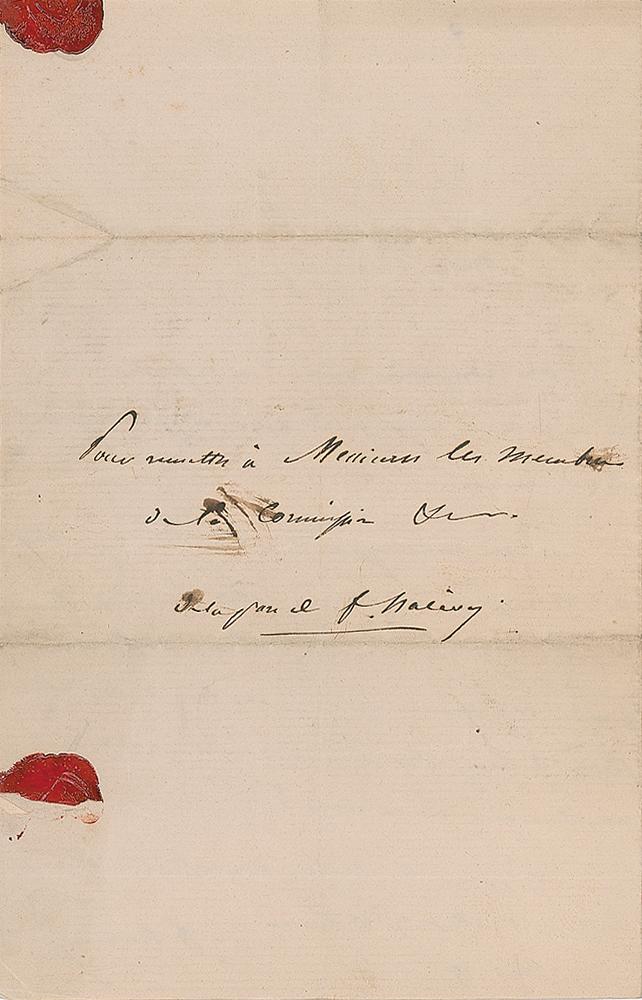 Pour remettre à Messieurs les membres
de la Commission &c.
de la part de f. Halévy.